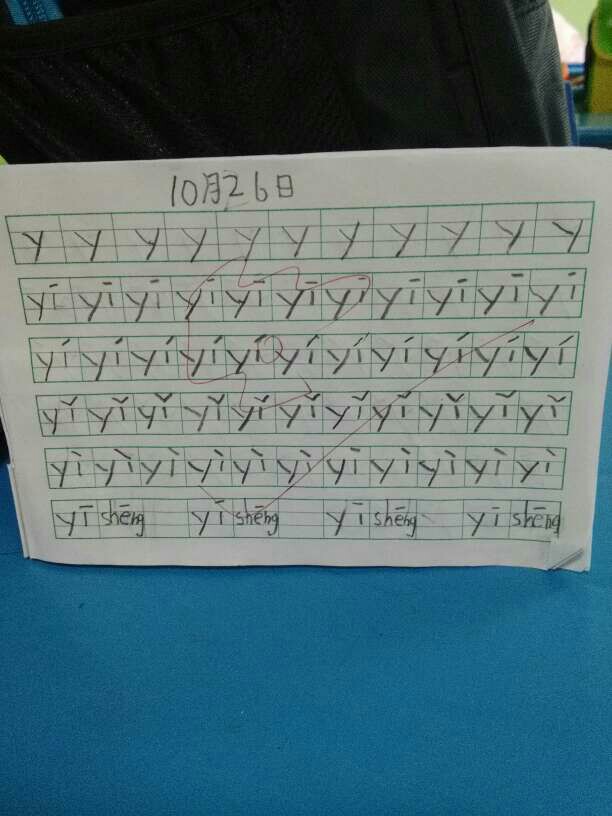 10月26日
y y y y y y y y y y y
yī yī yī yī yī yī yī yī yī yī yī
yí yí yí yí yí yí yí yí yí yí yí
yǐ yǐ yǐ yǐ yǐ yǐ yǐ yǐ yǐ yǐ yǐ
yì yì yì yì yì yì yì yì yì yì yì
yī shēng yī shēng yī shēng yī shēng